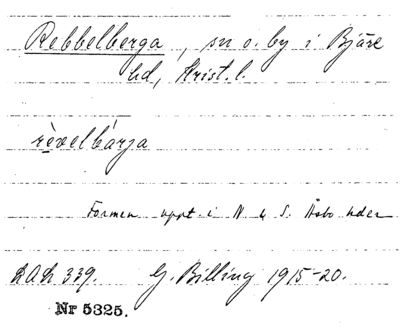 Rebbelberga, sn o. by i Bjäre
hd, Krist. l.
rèvelbárja
Formen uppt. i N & S. Åsbo hder
LAL 339. G. Billing 1915-20.
Nr 5325.